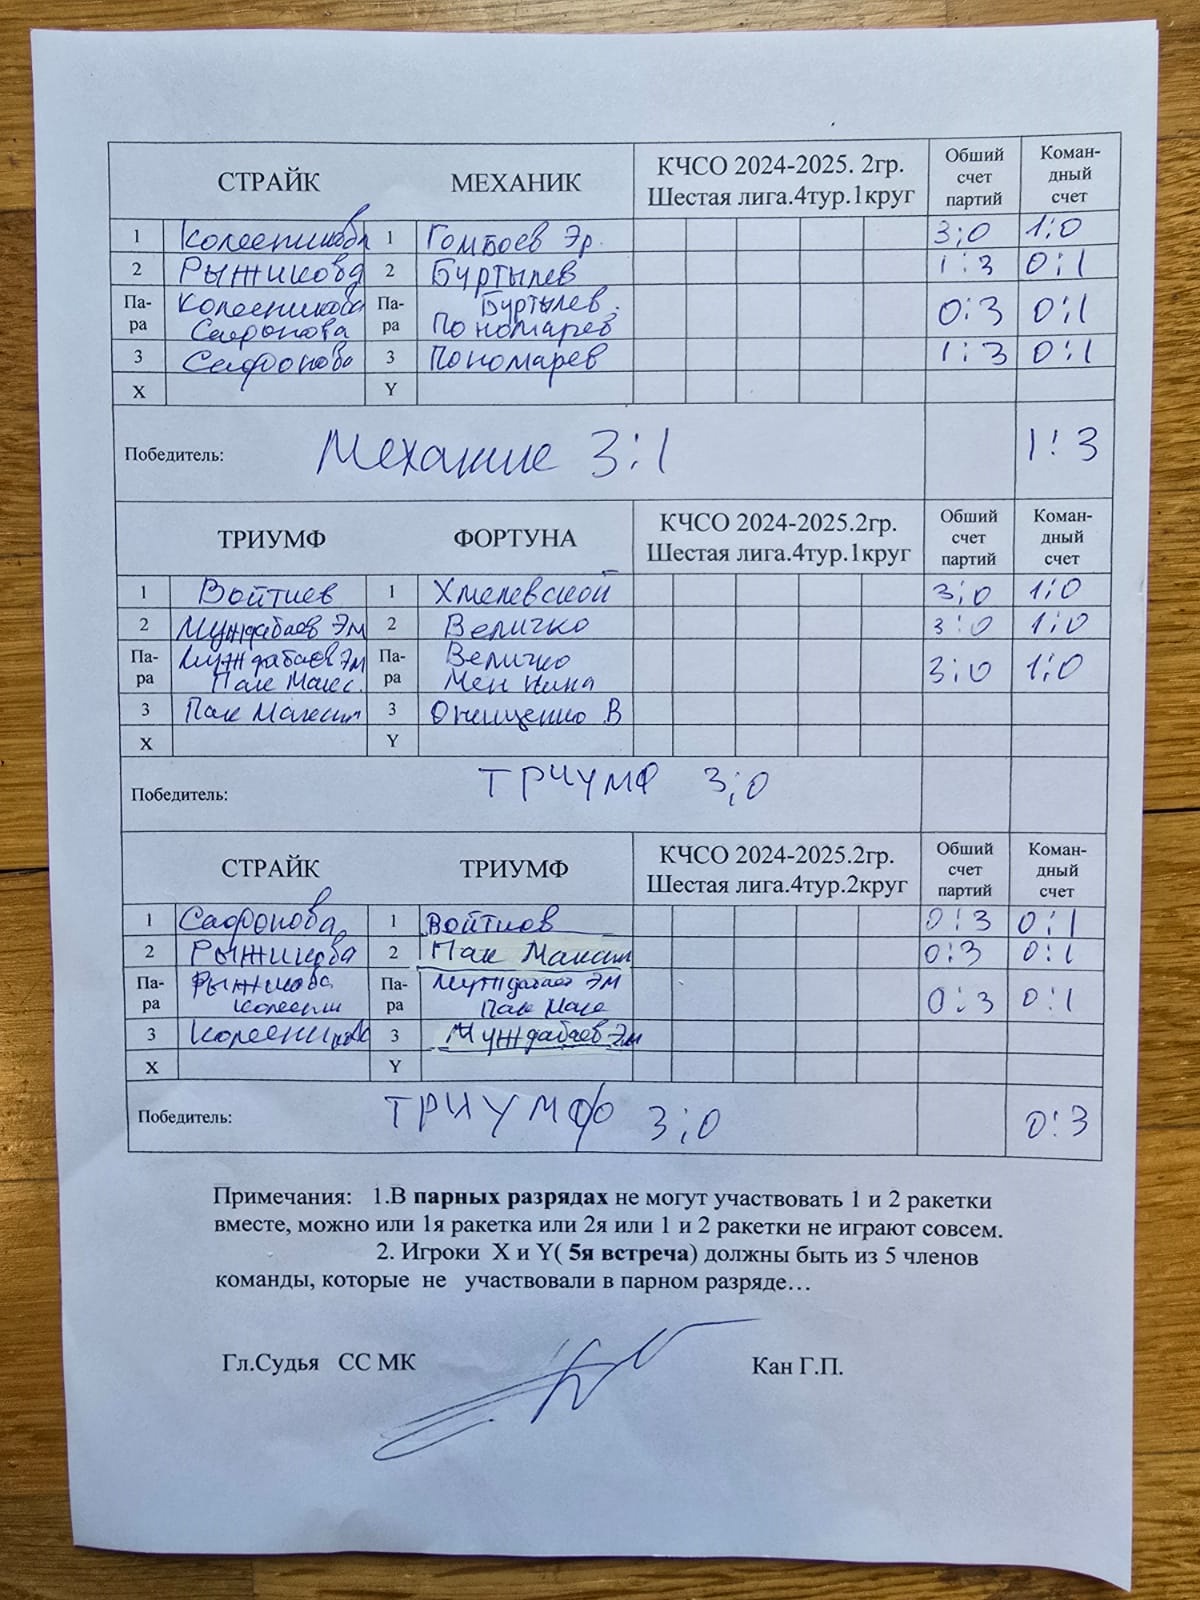 СТРАЙК МЕХАНИК КЧСО 2024-2025. 2гр. Шестая лига.4тур.1круг Обший счет партий Коман-дный счет
1 Колесникова 1 Гомбоев Эр. 3:0 1:0
2 Рыжикова 2 Буртылев 1:3 0:1
Па-ра Колесникова Па-ра Буртылев. 0:3 0:1
Сафонова Пономарев
3 Сафонова 3 Пономарев 1:3 0:1
X Y
Победитель: Механик 3:1 1:3
ТРИУМФ ФОРТУНА КЧСО 2024-2025.2гр. Шестая лига.4тур.1круг Обший счет партий Коман-дный счет
1 Войтиев 1 Хмелевской 3:0 1:0
2 Муждабаев Эм 2 Величко 3:0 1:0
Па-ра Муждабаев Эм Па-ра Величко 3:0 1:0
Пак Макс.
3 Пак Максим 3 Онищенко В
X Y
Победитель: ТРИУМФ 3:0
СТРАЙК ТРИУМФ КЧСО 2024-2025.2гр. Шестая лига.4тур.2круг Обший счет партий Коман-дный счет
1 Сафонова 1 Войтиов 0:3 0:1
2 Рыжикова 2 Пак Максим 0:3 0:1
Па-ра Рыжикова Па-ра Муждабаев Эм 0:3 0:1
Колесни Пак Макс
3 Колесникова 3 Муждабаев Эм
X Y
Победитель: ТРИУМФ 3:0 0:3
Примечания: 1.В парных разрядах не могут участвовать 1 и 2 ракетки
вместе, можно или 1я ракетка или 2я или 1 и 2 ракетки не играют совсем.
2. Игроки X и Y( 5я встреча) должны быть из 5 членов
команды, которые не участвовали в парном разряде…
Гл.Судья СС МК Кан Г.П.